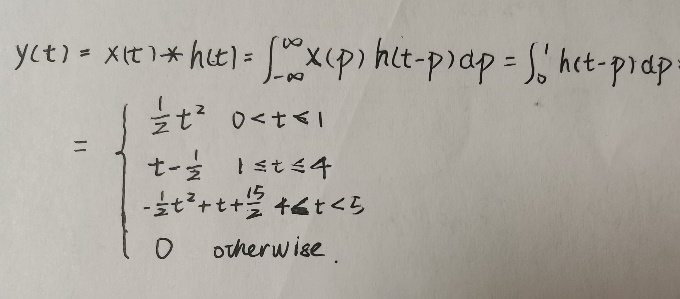 y(t) = x(t) * h(t) = ∫_{-∞}^{∞} x(p) h(t-p) dp = ∫_0^1 h(t-p) dp
= { 1/2 t² 0 < t ≤ 1
t - 1/2 1 ≤ t ≤ 4
-1/2 t² + t + 15/2 4 ≤ t < 5
0 otherwise.